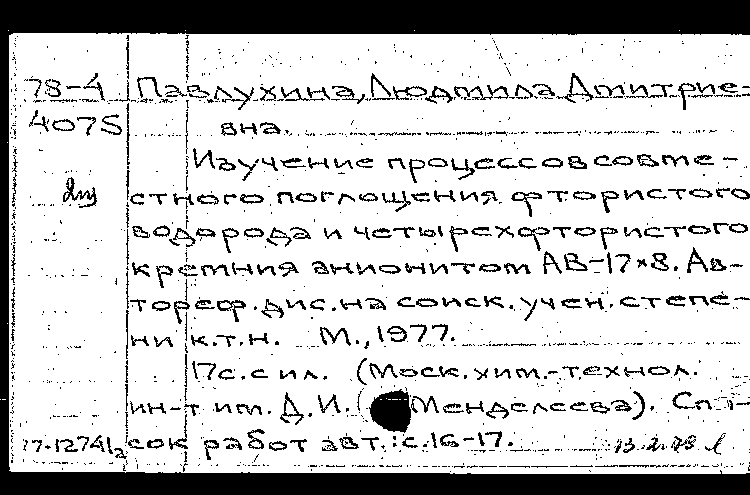 78-4 Павлухина, Людмила Дмитрие-
4075 вна.
Изучение процессов совме-
стного поглощения фтористого
водорода и четырехфтористого
кремния анионитом АВ-17×8. Ав-
тореф. дис. на соиск. учен. степе-
ни к.т.н. М., 1977.
17с. с ил. (Моск. хим.-технол.
ин-т им. Д. И. Менделеева). Спи-
сок работ авт.: с. 16-17.